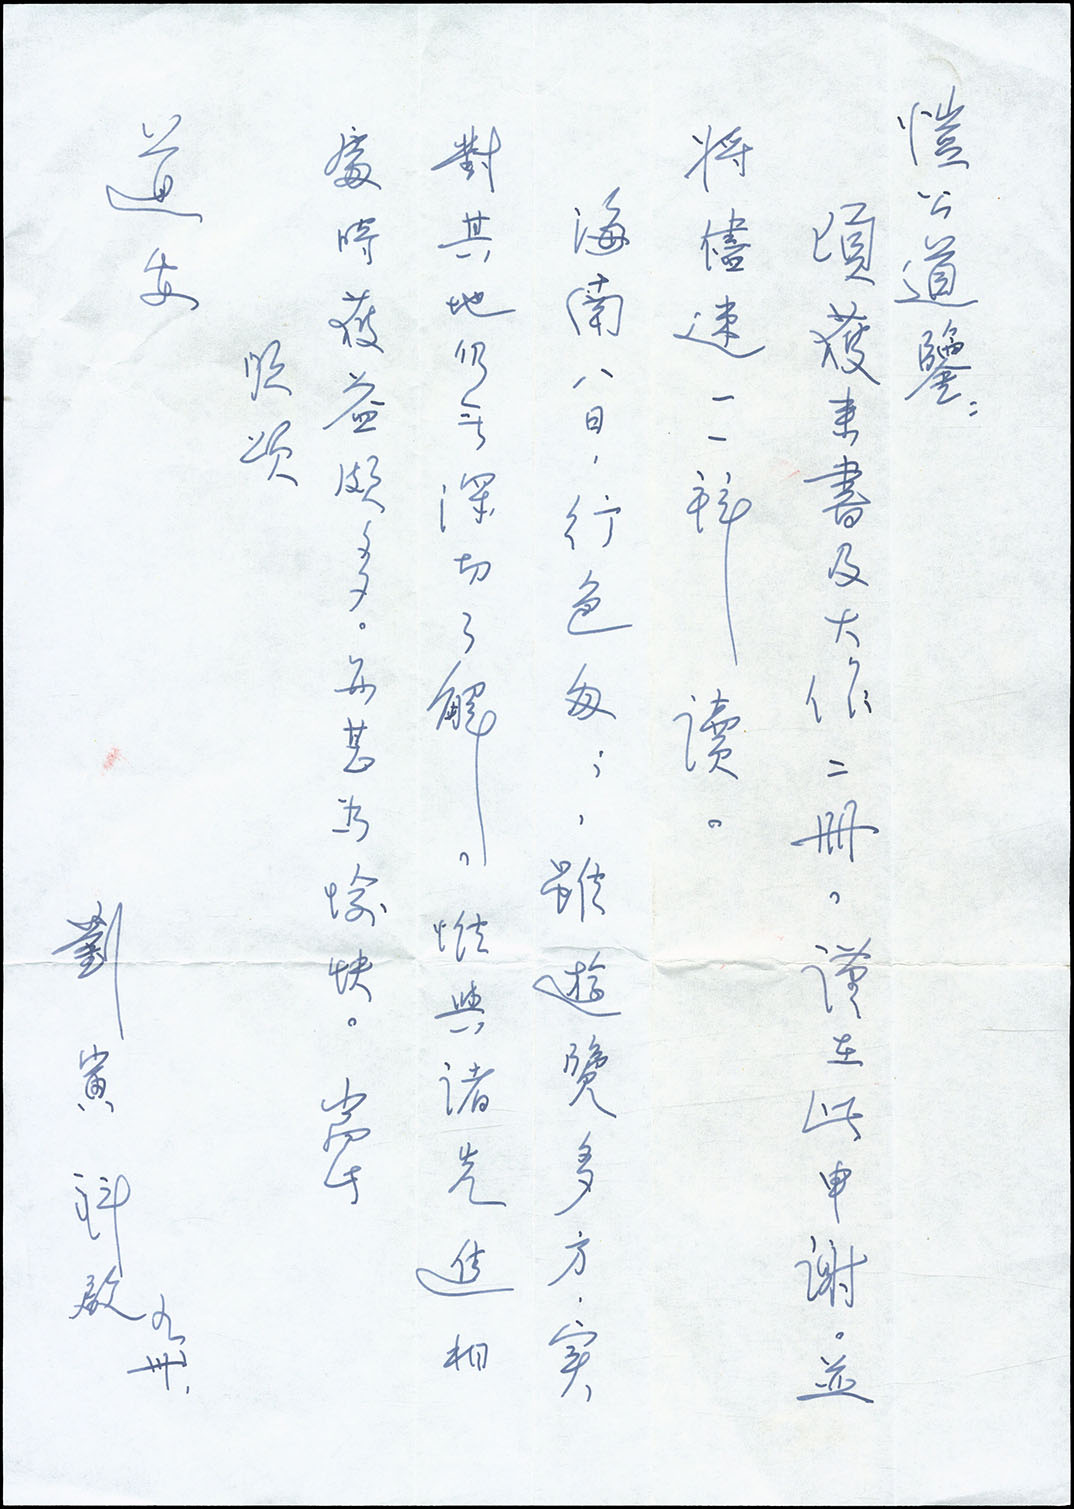 愷公道鑒：
頃獲來書及大作二冊。謹在此申謝。並
將儘速一一拜讀。
海南八日，行色匆匆，雖遊覽多方，实
對其地仍無深切了解。惟與諸先進相
處時獲益頗多。亦甚為愉快。耑此
順頌
道安
劉寅 拜啟
九、卅、